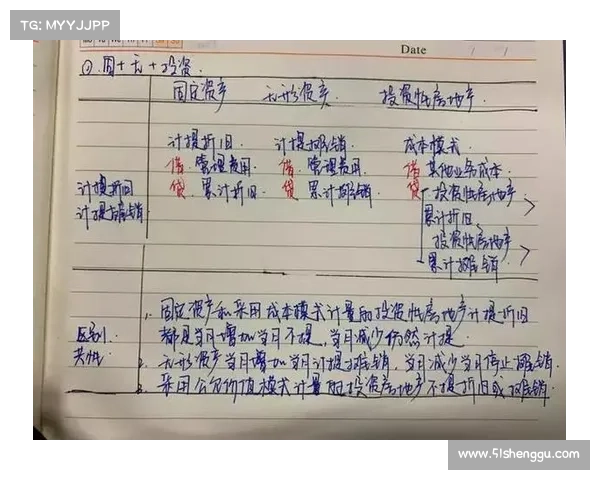 TG: MYYJJPP
Date
① 固+无+投资.
固定资产 无形资产. 投资性房地产.
计提折旧 计提摊销. 成本模式.
借 管理费用 借 管理费用. 借 其他业务成本.
计提折旧 贷 累计折旧. 贷 累计摊销 贷 投资性房地产
计提摊销 累计折旧.
投资性房地产
累计摊销
1. 固定资产和采用成本模式计量的投资性房地产计提折旧
区别. 都是当月增加当月不提, 当月减少仍然计提.
共性: 2. 无形资产当月增加当月计提摊销, 当月减少当月停止摊销.
3. 采用公允价值模式计量的投资房地产不提折旧或摊销.
www.51shenggu.com